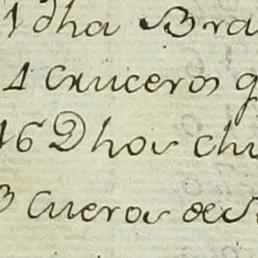 1 dha Bra
1 Cruceros q
16 Dhos chu
3 Cueros de